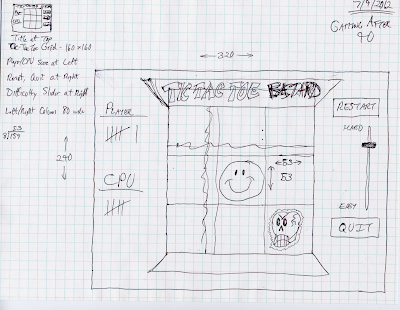 7/9/2012
GAMING AFTER
40
Title at Top
Tic Tac Toe Grid - 160x160
Player/CPU Score at Left
Reset, Quit at Right
Difficulty Slider at Right
Left/Right Columns 80 wide
53
3/159
240
320
TIC TAC TOE
PLAYER
CPU
RESTART
HARD
EASY
QUIT
53
53